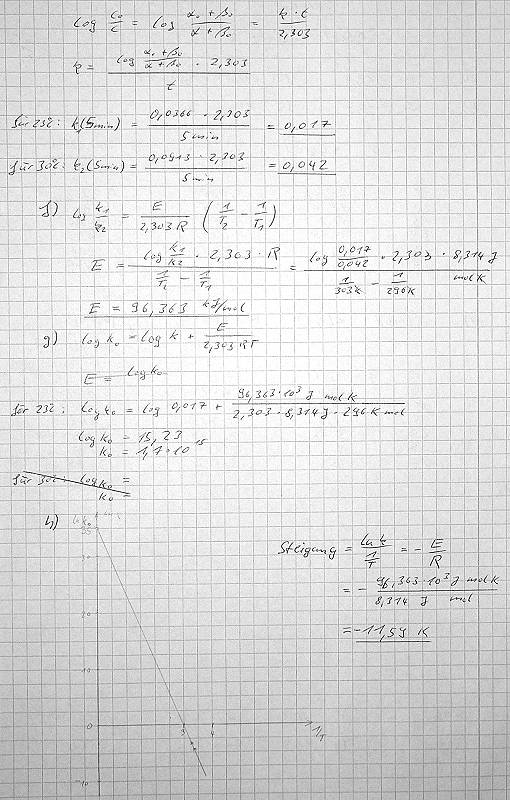 log c₀/c = log (α₀ + β₀)/(α + β₀) = (k · t)/2,303
k = (log (α₀ + β₀)/(α + β₀) · 2,303)/t
für 23°C: k₁(5min) = (0,0366 · 2,303)/5min = 0,017
für 30°C: k₂(5min) = (0,0913 · 2,303)/5min = 0,042
f) log k₁/k₂ = E/(2,303 R) (1/T₂ - 1/T₁)
E = (log k₁/k₂ · 2,303 · R)/(1/T₂ - 1/T₁) = (log 0,017/0,042 · 2,303 · 8,314 J)/(1/303K - 1/296K mol K)
E = 96,363 kJ/mol
g) log k₀ = log k + E/(2,303 RT)
E = log k₀
für 23°C: log k₀ = log 0,017 + (96,363·10³ J mol K)/(2,303 · 8,314 J · 296 K mol)
log k₀ = 15,23
k₀ = 1,7·10¹⁵
für 30°C: log k₀ =
k₀ =
h)
Steigung = ln k/(1/T) = - E/R
= - (96,363·10³ J mol K)/(8,314 J mol)
= -11,59 K
30
20
10
0
3
4
1/T
-10